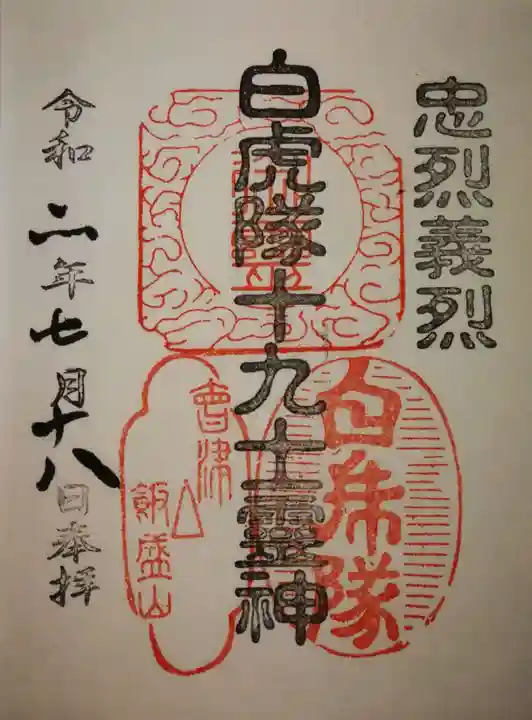 忠烈義烈
白虎隊十九士霊神
白乕隊
會津
飯盛山
令和二年七月十八日奉拝